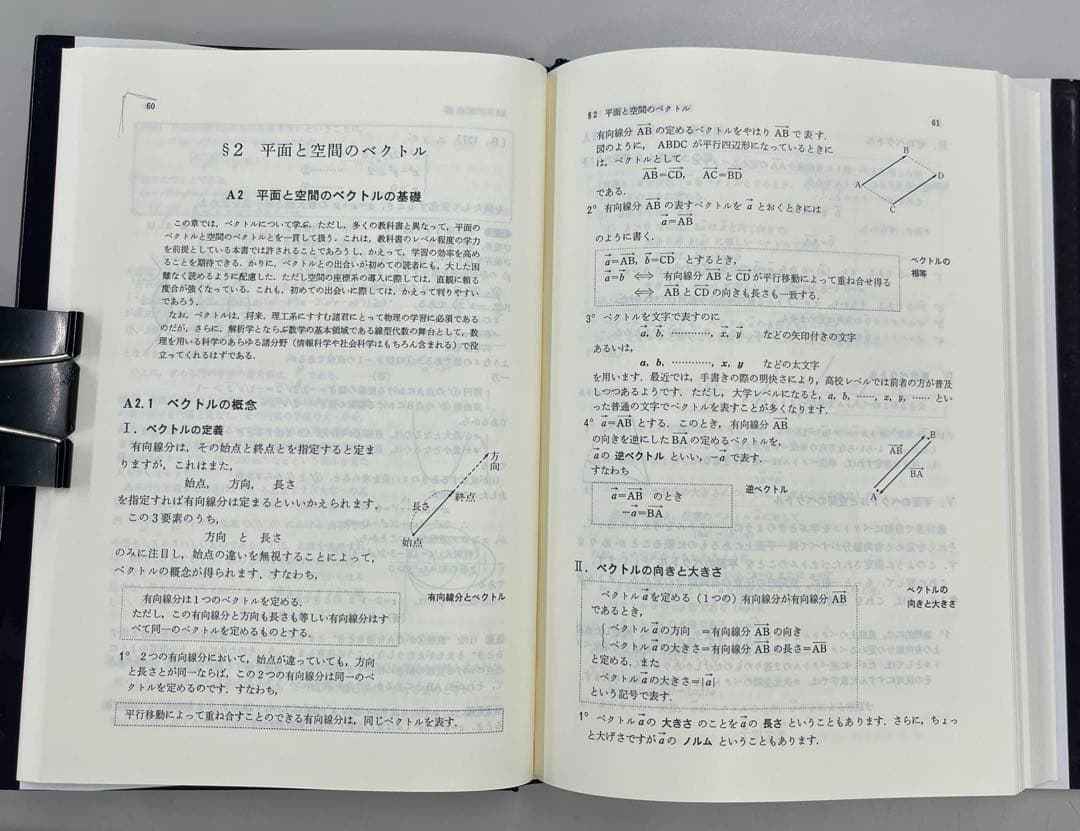 60
§2 平面と空間のベクトル
A2 平面と空間のベクトルの基礎
この章では，ベクトルについて学ぶ．ただし，多くの教科書と異なって，平面の
ベクトルと空間のベクトルとを一貫して扱う．これは，教科書のレベル程度の学力
を前提としている本書では許されることであろうし，かえって，学習の効率を高め
ることを期待できる．かりに，ベクトルとの出合いが初めての読者にも，大した困
難なく読めるように配慮した．ただし空間の座標系の導入に際しては，直観に頼る
度合が強くなっている．これも，初めての出会いに際しては，かえって判りやすい
であろう．
なお，ベクトルは，将来，理工系にすすむ諸君にとって物理の学習に必須である
のだが，さらに，解析学とならぶ数学の基本領域である線型代数の舞台として，数
理を用いる科学のあらゆる諸分野（情報科学や社会科学はもちろん含まれる）で役
立ってくれるはずである．
A2.1 ベクトルの概念
Ⅰ．ベクトルの定義
有向線分は，その始点と終点とを指定すると定ま
りますが，これはまた，
始点， 方向， 長さ
を指定すれば有向線分は定まるといいかえられます．
この3要素のうち，
方向 と 長さ
のみに注目し，始点の違いを無視することによって，
ベクトルの概念が得られます．すなわち，
方向
終点
長さ
始点
有向線分とベクトル
有向線分は1つのベクトルを定める．
ただし，この有向線分と方向も長さも等しい有向線分はす
べて同一のベクトルを定めるものとする．
1° 2つの有向線分において，始点が違っていても，方向
と長さとが同一ならば，この2つの有向線分は同一のベ
クトルを定めるのです．すなわち，
平行移動によって重ね合すことのできる有向線分は，同じベクトルを表す．
§2 平面と空間のベクトル
61
有向線分 $\overrightarrow{AB}$ の定めるベクトルをやはり $\overrightarrow{AB}$ で表す．
図のように，ABDC が平行四辺形になっているときに
は，ベクトルとして
$\overrightarrow{AB}=\overrightarrow{CD}$， $\overrightarrow{AC}=\overrightarrow{BD}$
である．
B
A
D
C
2° 有向線分 $\overrightarrow{AB}$ の表すベクトルを $\vec{a}$ とおくときには
$\vec{a}=\overrightarrow{AB}$
のように書く．
$\vec{a}=\overrightarrow{AB}$，$\vec{b}=\overrightarrow{CD}$ とするとき，
$\vec{a}=\vec{b}$ ⟺ 有向線分 AB と CD が平行移動によって重ね合せ得る
⟺ $\overrightarrow{AB}$ と $\overrightarrow{CD}$ の向きも長さも一致する．
ベクトルの
相等
3° ベクトルを文字で表すのに
$\vec{a}$, $\vec{b}$, …………, $\vec{x}$, $\vec{y}$ などの矢印付きの文字
あるいは，
a, b, …………, x, y などの太文字
を用います．最近では，手書きの際の明快さにより，高校レベルでは前者の方が普及
しつつあるようです．ただし，大学レベルになると，a, b, ……, x, y, …… とい
った普通の文字でベクトルを表すことが多くなります．
4° $\vec{a}=\overrightarrow{AB}$ とする．このとき，有向線分 $\overrightarrow{AB}$
の向きを逆にした $\overrightarrow{BA}$ の定めるベクトルを，
$\vec{a}$ の 逆ベクトル といい，$-\vec{a}$ で表す．
すなわち
$\vec{a}=\overrightarrow{AB}$ のとき
$-\vec{a}=\overrightarrow{BA}$
逆ベクトル
B
$\overrightarrow{AB}$
$\overrightarrow{BA}$
A
Ⅱ．ベクトルの向きと大きさ
ベクトル $\vec{a}$ を定める（1つの）有向線分が有向線分 $\overrightarrow{AB}$
であるとき，
ベクトル $\vec{a}$ の方向 ＝有向線分 $\overrightarrow{AB}$ の向き
ベクトル $\vec{a}$ の大きさ＝有向線分 $\overrightarrow{AB}$ の長さ＝$\overline{AB}$
と定める．また
ベクトル $\vec{a}$ の大きさ＝$|\vec{a}|$
という記号で表す．
ベクトルの
向きと大きさ
1° ベクトル $\vec{a}$ の 大きさ のことを $\vec{a}$ の 長さ ということもあります．さらに，ちょっ
と大げさですが $\vec{a}$ の ノルム ということもあります．